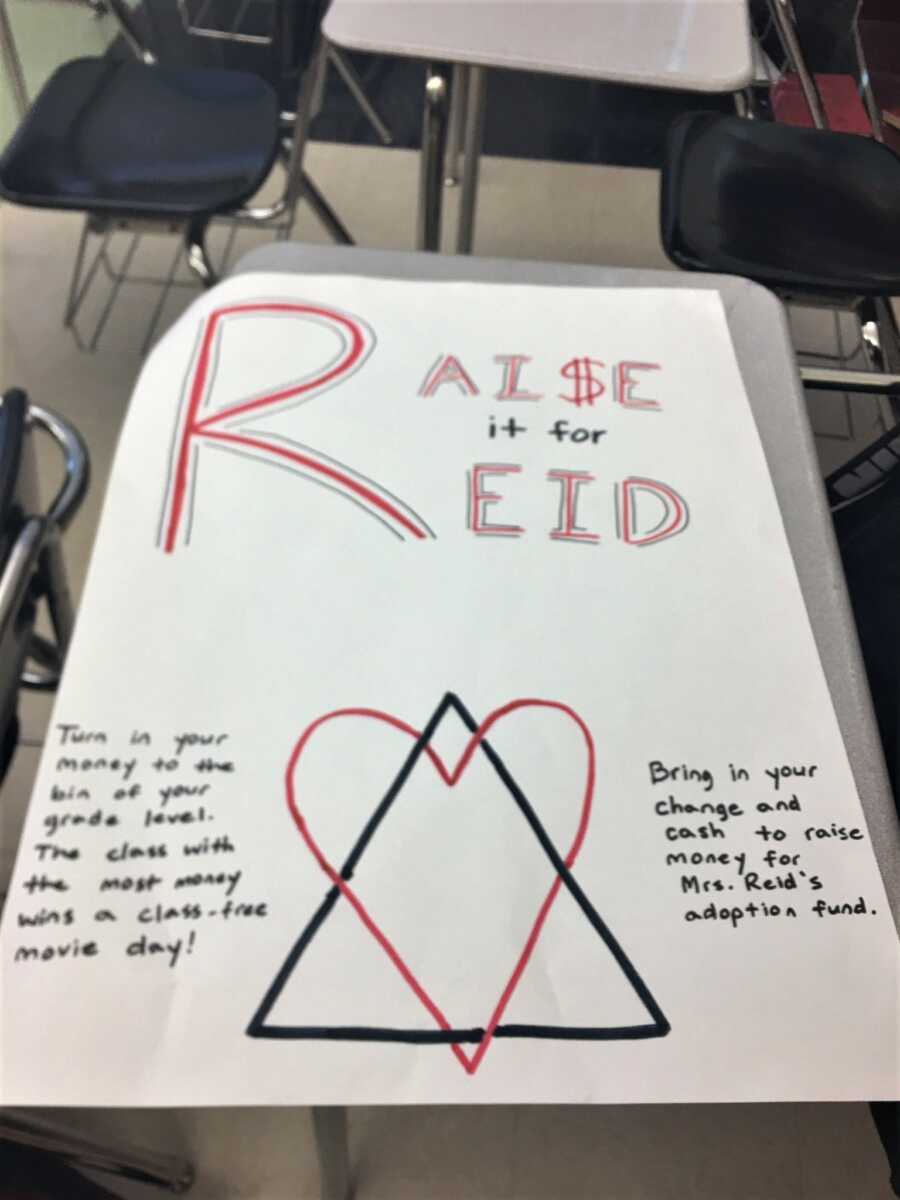 RAI$E
it for
REID
Turn in your
money to the
bin of your
grade level.
The class with
the most money
wins a class-free
movie day!
Bring in your
change and
cash to raise
money for
Mrs. Reid's
adoption fund.